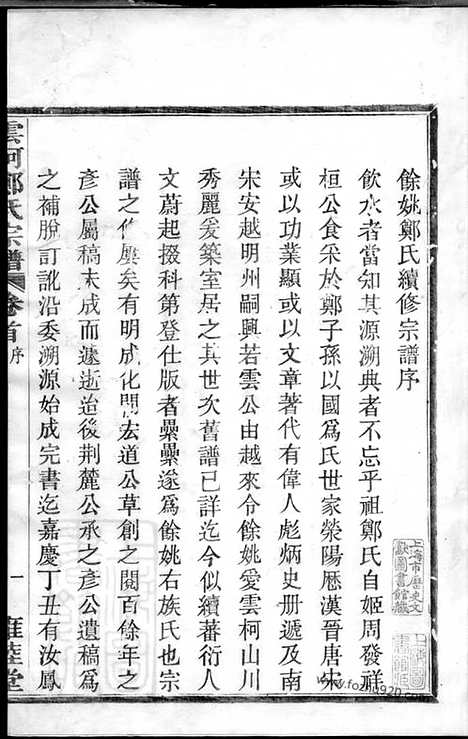 餘姚鄭氏續修宗譜序
飲水者當知其源溯典者不忘乎祖鄭氏自姬周發祥
桓公食采於鄭子孫以國爲氏世家滎陽歷漢晉唐宋
或以功業顯或以文章著代有偉人彪炳史册遞及南
宋安越明州嗣興若雲公由越來令餘姚愛雲柯山川
秀麗爰築室居之其世次舊譜已詳迄今似續蕃衍人
文蔚起掇科第登仕版者纍纍遂爲餘姚右族氏也宗
譜之作屢矣有明成化間宏道公草創之閱百餘年之
彥公屬稿未成而遽逝迨後荆麓公承之彥公遺稿爲
之補脫訂訛沿委溯源始成完書迄嘉慶丁丑有汝鳳
雲柯鄭氏宗譜 卷首 序 一 雍睦堂
上海市歷史文獻圖書館藏
www.fozhu920.com